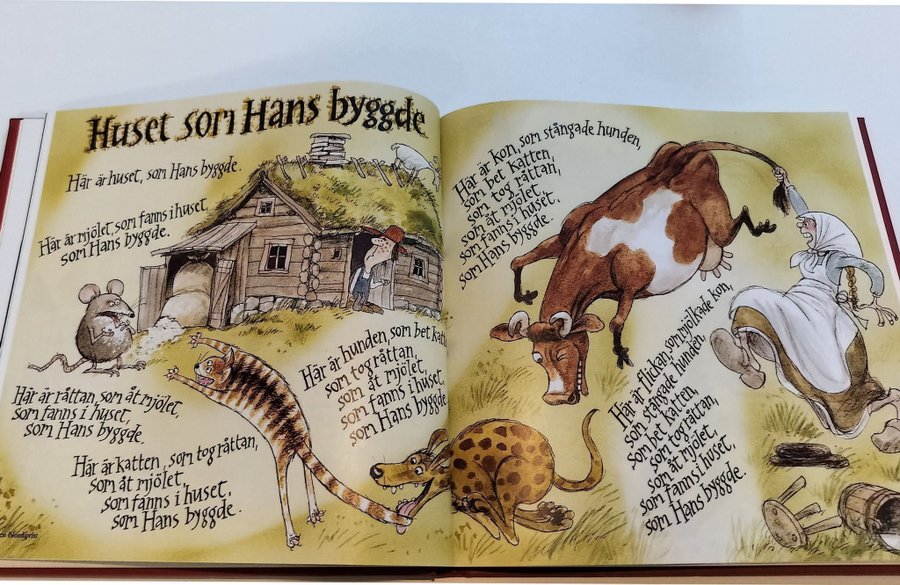 Huset som Hans byggde
Här är huset, som Hans byggde.
Här är mjölet, som fanns i huset,
som Hans byggde.
Här är råttan, som åt mjölet,
som fanns i huset,
som Hans byggde.
Här är katten, som tog råttan,
som åt mjölet,
som fanns i huset,
som Hans byggde.
Här är hunden, som bet katt
som tog råttan,
som åt mjölet,
som fanns i huset,
som Hans byggde
Här är kon, som stångade hunden,
som bet katten,
som tog råttan,
som åt mjölet,
som fanns i huset,
som Hans byggde.
Här är flickan, som mjölkade kon,
som stångade hunden,
som bet katten,
som tog råttan,
som åt mjölet,
som fanns i huset,
som Hans byggde.